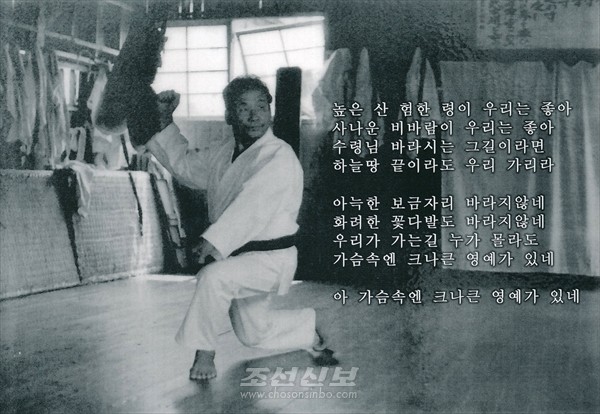 높은 산 험한 령이 우리는 좋아
사나운 비바람이 우리는 좋아
수령님 바라시는 그길이라면
하늘땅 끝이라도 우리 가리라
아늑한 보금자리 바라지않네
화려한 꽃다발도 바라지않네
우리가 가는길 누가 몰라도
가슴속엔 크나큰 영예가 있네
아 가슴속엔 크나큰 영예가 있네
조선신보
www.chosonsinbo.com